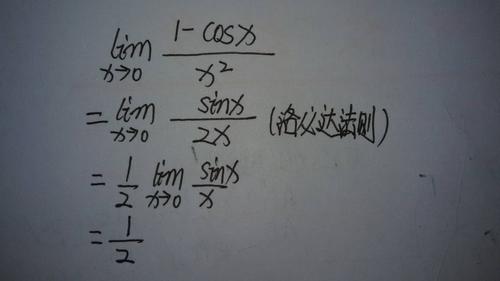 lim x→0 (1-cosx)/x²
= lim x→0 sinx/2x (洛必达法则)
= 1/2 lim x→0 sinx/x
= 1/2